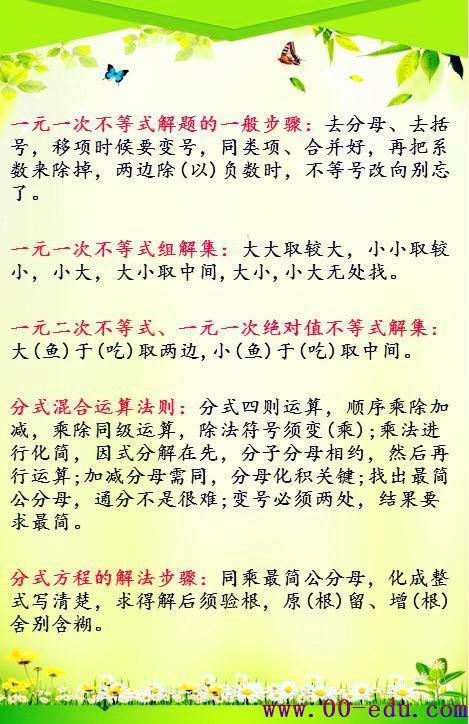 一元一次不等式解题的一般步骤：去分母、去括
号，移项时候要变号，同类项、合并好，再把系
数来除掉，两边除(以)负数时，不等号改向别忘
了。
一元一次不等式组解集：大大取较大，小小取较
小，小大，大小取中间,大小,小大无处找。
一元二次不等式、一元一次绝对值不等式解集：
大(鱼)于(吃)取两边,小(鱼)于(吃)取中间。
分式混合运算法则：分式四则运算，顺序乘除加
减，乘除同级运算，除法符号须变(乘);乘法进
行化简，因式分解在先，分子分母相约，然后再
行运算;加减分母需同，分母化积关键;找出最简
公分母，通分不是很难;变号必须两处，结果要
求最简。
分式方程的解法步骤：同乘最简公分母，化成整
式写清楚，求得解后须验根，原(根)留、增(根)
舍别含糊。
www.00-edu.com